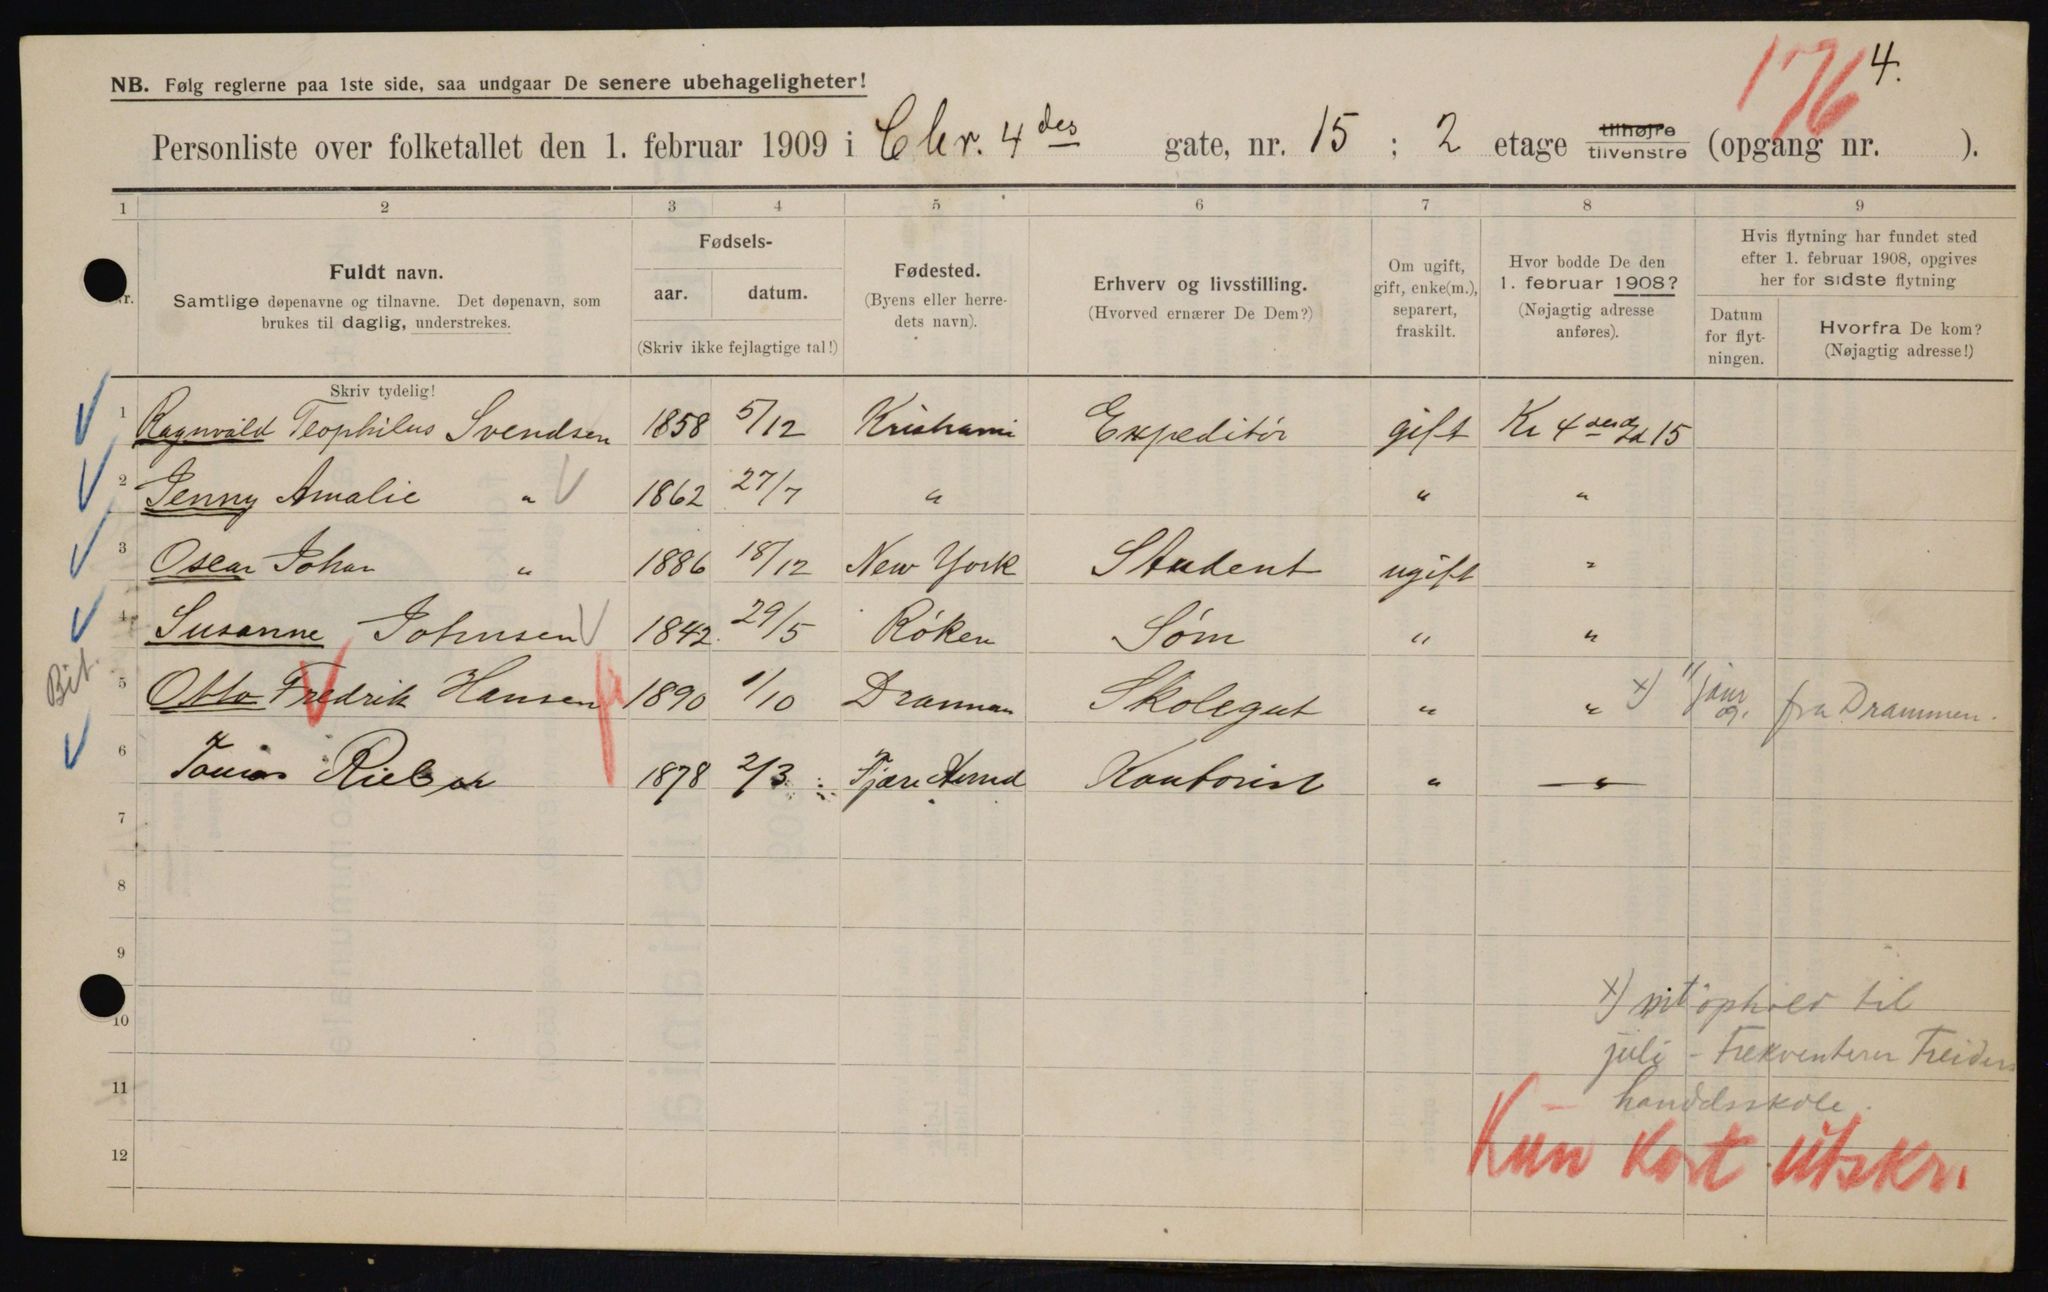 1764.
NB. Følg reglerne paa 1ste side, saa undgaar De senere ubehageligheter!
Personliste over folketallet den 1. februar 1909 i Chr. 4 des gate, nr. 15 ; 2 etage tilhøjre tilvenstre (opgang nr. ).
1 2 3 4 5 6 7 8 9
Nr.
Fuldt navn.
Samtlige døpenavne og tilnavne. Det døpenavn, som
brukes til daglig, understrekes.
Skriv tydelig!
Fødsels-
aar. datum.
(Skriv ikke fejlagtige tal!)
Fødested.
(Byens eller herre-
dets navn).
Erhverv og livsstilling.
(Hvorved ernærer De Dem?)
Om ugift,
gift, enke(m.),
separert,
fraskilt.
Hvor bodde De den
1. februar 1908?
(Nøjagtig adresse
anføres).
Hvis flytning har fundet sted
efter 1. februar 1908, opgives
her for sidste flytning
Datum
for flyt-
ningen.
Hvorfra De kom?
(Nøjagtig adresse!)
1 Ragnvald Teophilus Svendsen 1858 5/12 Kristiania Expeditør gift Kr 4 des gd 15
2 Jenny Amalie " 1862 27/7 " " "
3 Oscar Johan " 1886 18/12 New York Student ugift "
4 Susanne Johnsen 1842. 29/5 Røken Søm " "
Bit.
5 Otto Fredrik Hansen 1890 1/10 Drammen Skolegut " " x) 1/1 jan 09. fra Drammen.
6 1878 2/3 Fjære Kontorist " "
7
8
9
10
11
12
x) mt ophold til
juli - Frekventerer
handelsskole.
Kun Kort utskr.